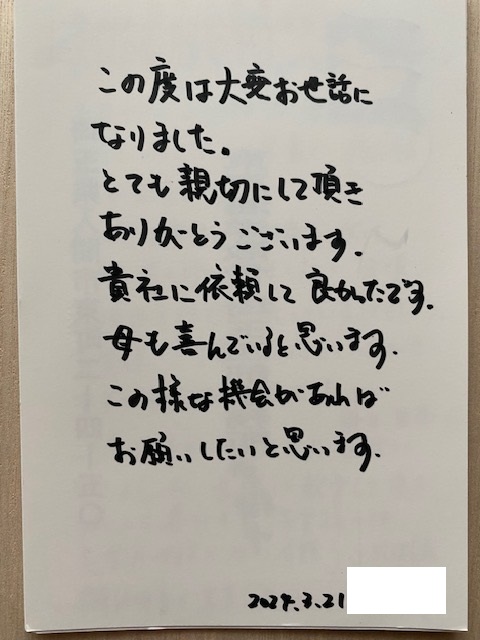 この度は大変お世話に
なりました。
とても親切にして頂き
ありがとうございます。
貴社に依頼して良かったです。
母も喜んでいると思います。
この様な機会があれば
お願いしたいと思います。
2024.3.21